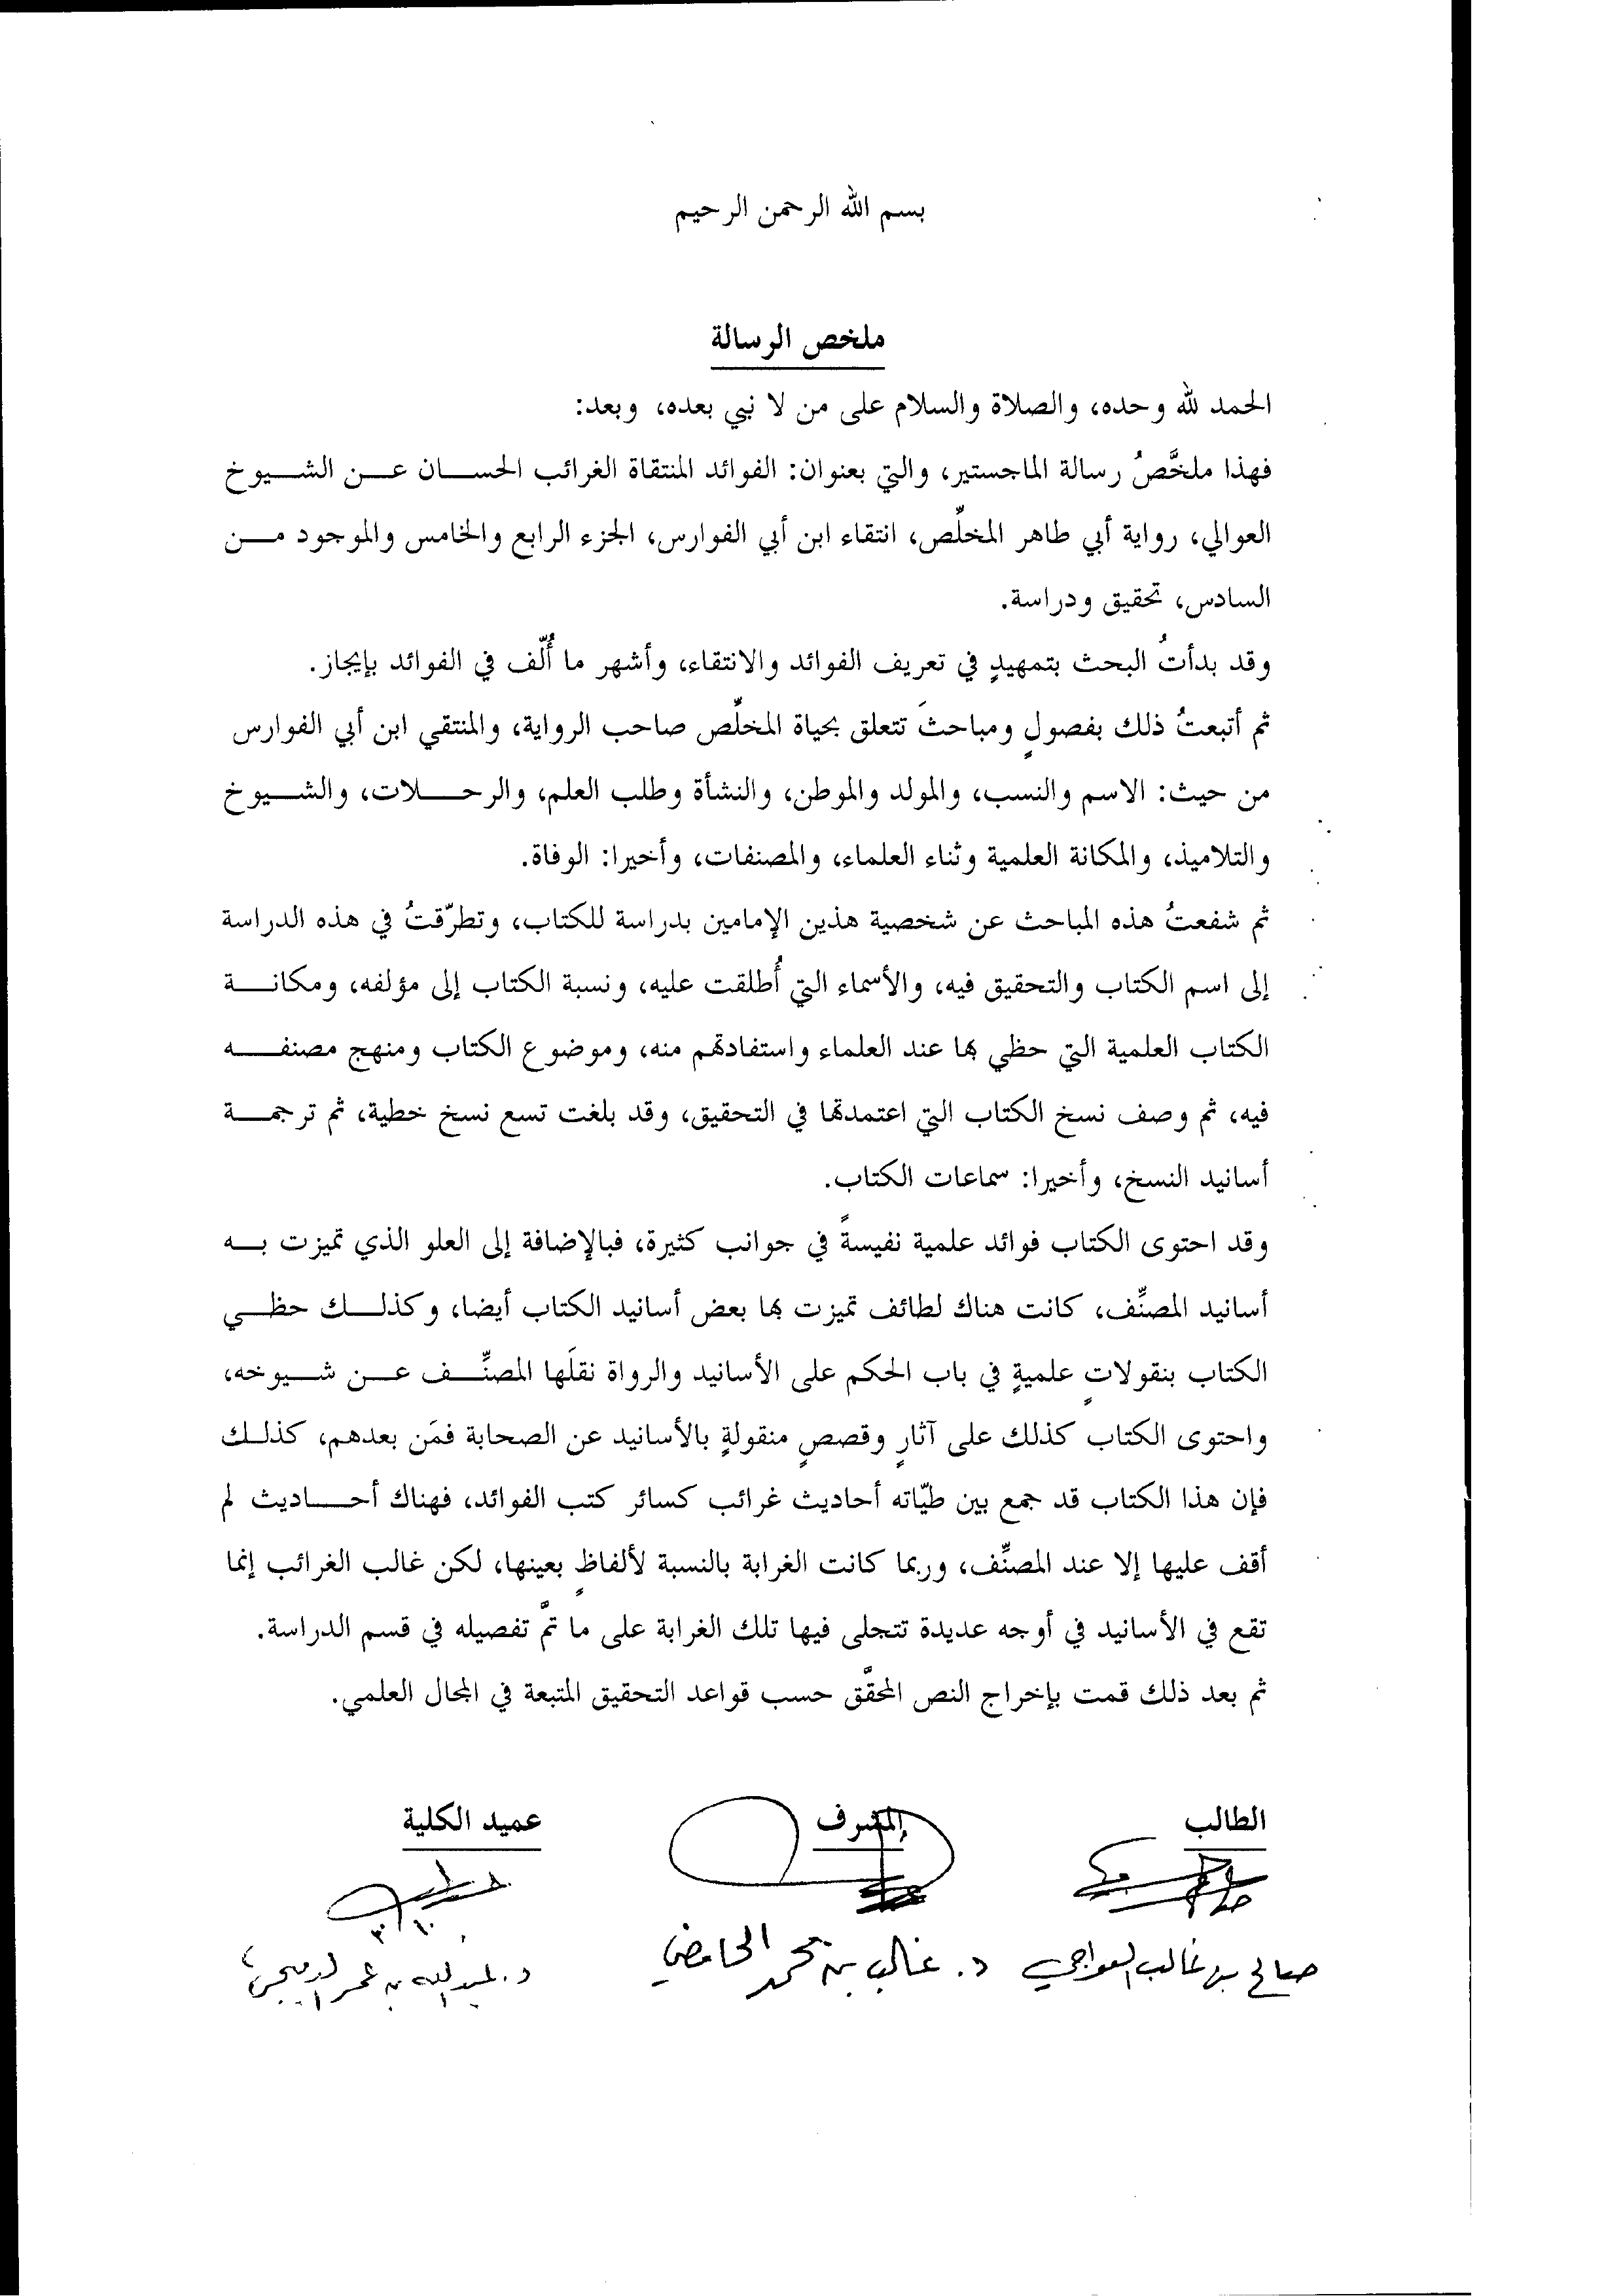 بسم الله الرحمن الرحيم
ملخص الرسالة
الحمد لله وحده، والصلاة والسلام على من لا نبي بعده، وبعد:
فهذا ملخَّصُ رسالة الماجستير، والتي بعنوان: الفوائد المنتقاة الغرائب الحسان عن الشيوخ
العوالي، رواية أبي طاهر المخلِّص، انتقاء ابن أبي الفوارس، الجزء الرابع والخامس والموجود من
السادس، تحقيق ودراسة.
وقد بدأتُ البحث بتمهيدٍ في تعريف الفوائد والانتقاء، وأشهر ما أُلّف في الفوائد بإيجاز.
ثم أتبعتُ ذلك بفصولٍ ومباحثَ تتعلق بحياة المخلِّص صاحب الرواية، والمنتقي ابن أبي الفوارس
من حيث: الاسم والنسب، والمولد والموطن، والنشأة وطلب العلم، والرحلات، والشيوخ
والتلاميذ، والمكانة العلمية وثناء العلماء، والمصنفات، وأخيرا: الوفاة.
ثم شفعتُ هذه المباحث عن شخصية هذين الإمامين بدراسة للكتاب، وتطرّقتُ في هذه الدراسة
إلى اسم الكتاب والتحقيق فيه، والأسماء التي أُطلقت عليه، ونسبة الكتاب إلى مؤلفه، ومكانة
الكتاب العلمية التي حظي بها عند العلماء واستفادتهم منه، وموضوع الكتاب ومنهج مصنفه
فيه، ثم وصف نسخ الكتاب التي اعتمدتها في التحقيق، وقد بلغت تسع نسخ خطية، ثم ترجمة
أسانيد النسخ، وأخيرا: سماعات الكتاب.
وقد احتوى الكتاب فوائد علمية نفيسةً في جوانب كثيرة، فبالإضافة إلى العلو الذي تميزت به
أسانيد المصنِّف، كانت هناك لطائف تميزت بها بعض أسانيد الكتاب أيضا، وكذلك حظي
الكتاب بنقولاتٍ علميةٍ في باب الحكم على الأسانيد والرواة نقلَها المصنِّف عن شيوخه،
واحتوى الكتاب كذلك على آثارٍ وقصصٍ منقولةٍ بالأسانيد عن الصحابة فمَن بعدهم، كذلك
فإن هذا الكتاب قد جمع بين طيّاته أحاديث غرائب كسائر كتب الفوائد، فهناك أحاديث لم
أقف عليها إلا عند المصنِّف، وربما كانت الغرابة بالنسبة لألفاظٍ بعينها، لكن غالب الغرائب إنما
تقع في الأسانيد في أوجه عديدة تتجلى فيها تلك الغرابة على ما تمَّ تفصيله في قسم الدراسة.
ثم بعد ذلك قمت بإخراج النص المحقَّق حسب قواعد التحقيق المتبعة في المجال العلمي.
الطالب المشرف عميد الكلية
صالح بن غالب العواجي د. غالب بن محمد الحامضي د. عبدالله بن عمر الدميجي